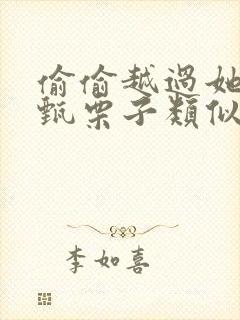 偷偷越過她
甄栗子類似
李如喜